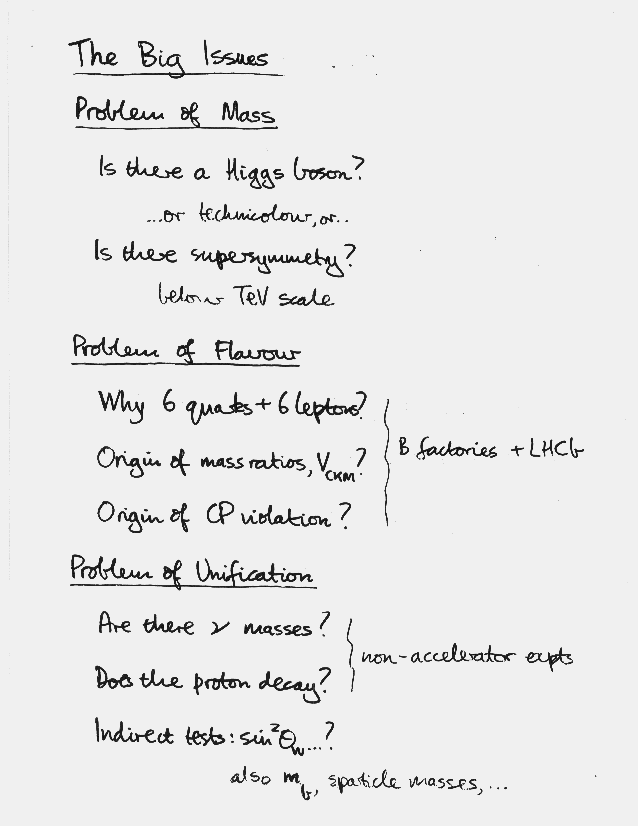 The Big Issues
Problem of Mass
Is there a Higgs boson?
...or technicolour, or..
Is there supersymmetry?
below TeV scale
Problem of Flavour
Why 6 quarks + 6 leptons?
Origin of mass ratios, V_CKM?
B factories + LHCb
Origin of CP violation?
Problem of Unification
Are there ν masses?
non-accelerator expts
Does the proton decay?
Indirect tests: sin²θ_W...?
also m_b, sparticle masses, ...